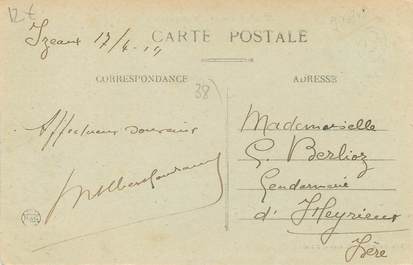 12€
Izeaux 17/4-19
CARTE POSTALE
CORRESPONDANCE
ADRESSE
38
Affectueux souvenirs
Mademoiselle
G. Berlioz
Gendarmerie
d'Heyrieux
Isère